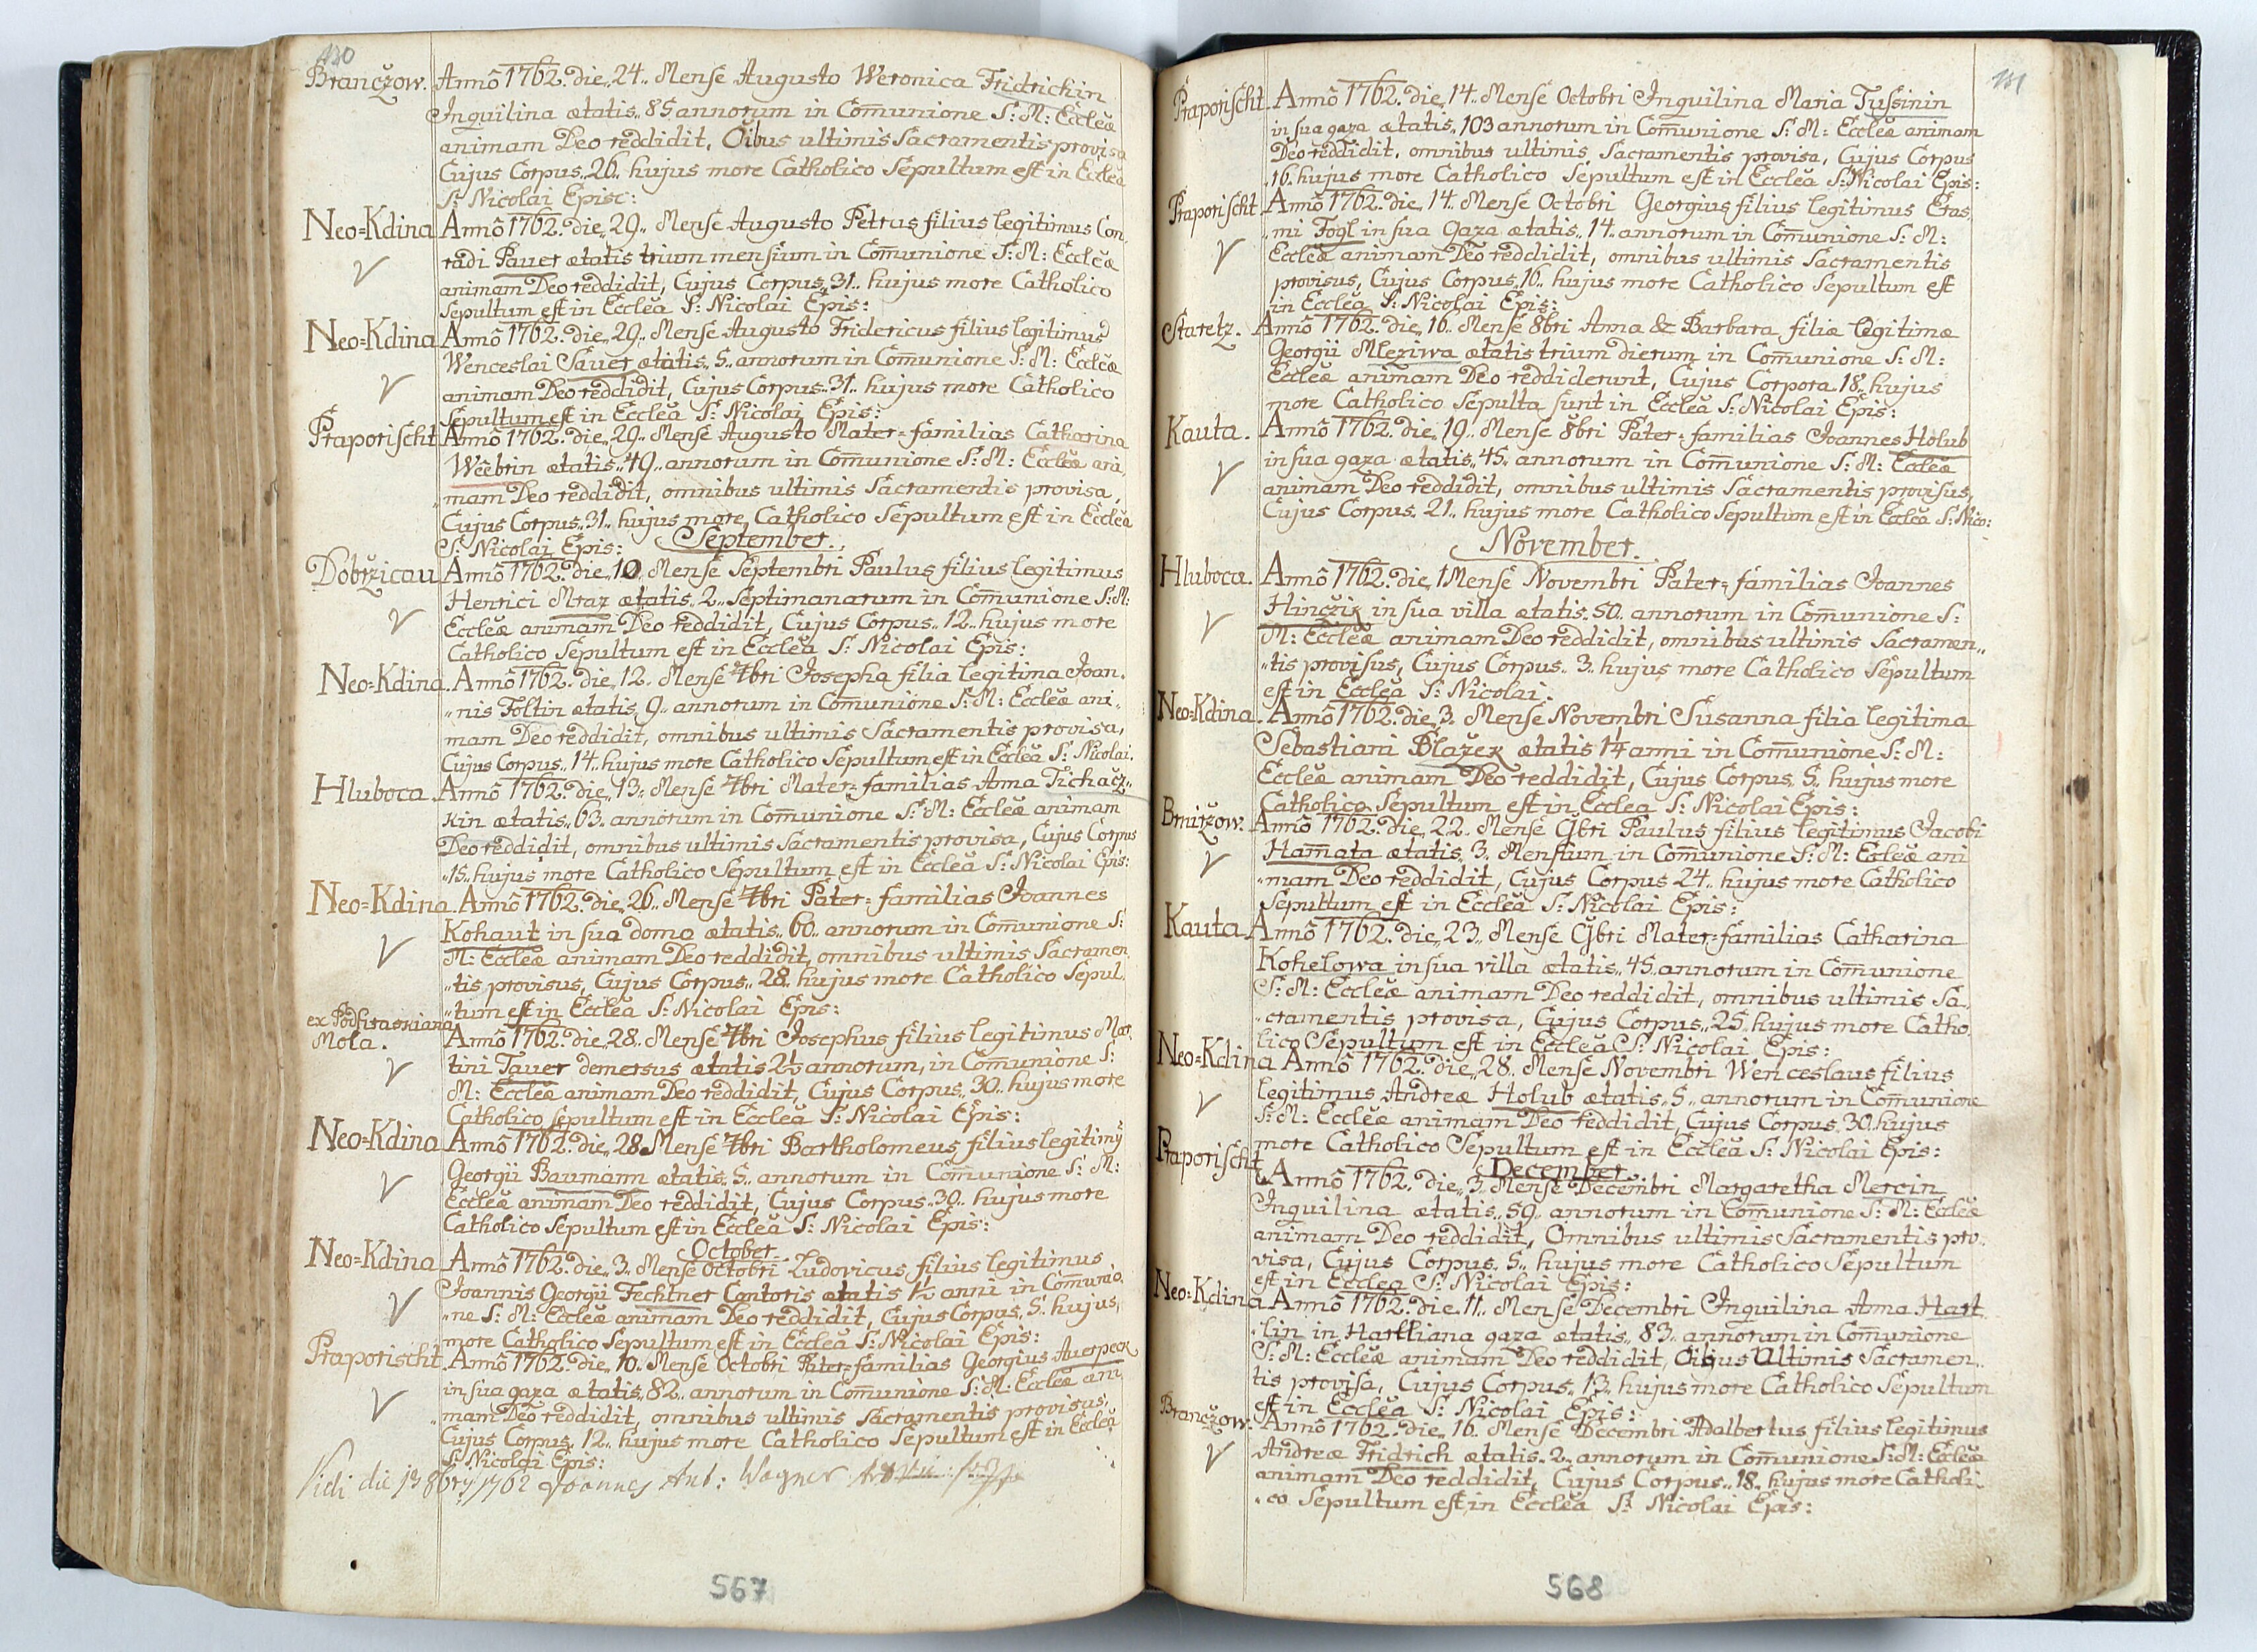 130
Brančzow. Annô 1762. die„ 24„ Mense Augusto Weronica Fridrichin
Inquilina ætatis„ 85 annorum in Com̄unione S: M: Eccleæ
animam Deo reddidit, Oībus ultimis Sacramentis provisa
Cujus Corpus„ 26„ hujus more Catholico Sepultum est in Ecclea
S: Nicolai Episc:
Neo=Kdina Annô 1762. die„ 29„ Mense Augusto Petrus filius legitimus Con„
radi Pauer ætatis trium mensium in Com̄unione S: M: Eccleæ
animam Deo reddidit, Cujus Corpus„ 31„ hujus more Catholico
Sepultum est in Ecclea S: Nicolai Epis:
Neo=Kdina Annô 1762. die„ 29„ Mense Augusto Fridericus filius legitimus
Wenceslai Sauer ætatis„ 5„ annorum in Com̄unione S: M: Eccleæ
animam Deo reddidit, Cujus Corpus„ 31„ hujus more Catholico
Sepultum est in Ecclea S: Nicolai Epis:
Praporischt Annô 1762. die„ 29„ Mense Augusto Mater=familias Catharina
Weebrin ætatis„ 49„ annorum in Com̄unione S: M: Eccleæ ani„
mam Deo reddidit, omnibus ultimis Sacramentis provisa,
Cujus Corpus„ 31„ hujus more Catholico Sepultum est in Ecclea
S: Nicolai Epis: September.
Dobržicau Annô 1762. die„ 10„ Mense Septembri Paulus filius legitimus
Henrici Mraz ætatis„ 2„ Septimanarum in Com̄unione S: M:
Eccleæ animam Deo reddidit, Cujus Corpus„ 12„ hujus more
Catholico Sepultum est in Ecclea S: Nicolai Epis:
Neo=Kdina. Annô 1762. die„ 12„ Mense 7bri Josepha filia legitima Joan„
„nis Foltin ætatis„ 9„ annorum in Com̄unione S: M: Eccleæ ani„
mam Deo reddidit, omnibus ultimis Sacramentis provisa,
Cujus Corpus„ 14„ hujus more Catholico Sepultum est in Ecclea S: Nicolai.
Hluboca. Annô 1762. die„ 13„ Mense 7bri Mater=familias Anna Tichacž„
kin ætatis„ 63„ annorum in Com̄unione S: M: Eccleæ animam
Deo reddidit, omnibus ultimis Sacramentis provisa, Cujus Corpus
„15„ hujus more Catholico Sepultum est in Ecclea S: Nicolai Epis:
Neo=Kdina. Annô 1762. die„ 26„ Mense 7bri Pater=familias Joannes
Kohaut in sua domo ætatis„ 60„ annorum in Com̄unione S:
M: Eccleæ animam Deo reddidit, omnibus ultimis Sacramen„
„tis provisus, Cujus Corpus„ 28„ hujus more Catholico Sepul„
„tum est in Ecclea S: Nicolai Epis:
Mola. Annô 1762. die„ 28„ Mense 7bri Josephus filius legitimus Mar„
tini Tauer demersus ætatis 2½ annorum, in Com̄unione S:
M: Eccleæ animam Deo reddidit, Cujus Corpus„ 30„ hujus more
Catholico Sepultum est in Ecclea S: Nicolai Epis:
Neo=Kdina Annô 1762. die„ 28 Mense 7bri Bartholomeus filius legitimy
Georgii Baumann ætatis„ 5„ annorum in Com̄unione S: M:
Eccleæ animam Deo reddidit, Cujus Corpus„ 30„ hujus more
Catholico Sepultum est in Ecclea S: Nicolai Epis:
October.
Neo=Kdina Annô 1762. die„ 3„ Mense Octobri Ludovicus filius legitimus
Joannis Georgii Fechtner Cantoris ætatis ½ anni in Com̄unio„
„ne S: M: Eccleæ animam Deo reddidit, Cujus Corpus„ 5„ hujus„
more Catholico Sepultum est in Ecclea S: Nicolai Epis:
Praporischt Annô 1762. die„ 10„ Mense Octobri Pater=familias Georgius Auerpeck
in sua gaza ætatis„ 82„ annorum in Com̄unione S: M: Eccleæ ani„
mam Deo reddidit, omnibus ultimis Sacramentis provisus,
Cujus Corpus„ 12„ hujus more Catholico Sepultum est in Ecclea
S: Nicolai Epis:
Vidi die 13 8bris 1762 Joannes Ant: Wagner
567
131
Praporischt. Annô 1762. die„ 14„ Mense Octobri Inquilina Maria Tussinin
in sua gaza ætatis„ 103 annorum in Com̄unione S: M: Eccleæ animam
Deo reddidit, omnibus ultimis Sacramentis provisa, Cujus Corpus
„16„ hujus more Catholico Sepultum est in Ecclea S: Nicolai Epis:
Praporischt. Annô 1762. die„ 14„ Mense Octobri Georgius filius legitimus Eras„
„mi Fogl in sua gaza ætatis„ 14„ annorum in Com̄unione S: M:
Eccleæ animam Deo reddidit, omnibus ultimis Sacramentis
provisus, Cujus Corpus„ 16„ hujus more Catholico Sepultum est
in Ecclea S: Nicolai Epis:
Staretz. Annô 1762. die„ 16„ Mense 8bri Anna & Barbara filiæ legitimæ
Georgii Mleziwa ætatis trium dierum in Com̄unione S: M:
Eccleæ animam Deo reddiderunt, Cujus Corpora„ 18„ hujus
more Catholico Sepulta sunt in Ecclea S: Nicolai Epis:
Kauta. Annô 1762. die„ 19„ Mense 8bri Pater=familias Joannes Holub
in sua gaza ætatis„ 45„ annorum in Com̄unione S: M: Eccleæ
animam Deo reddidit, omnibus ultimis Sacramentis provisus,
Cujus Corpus„ 21„ hujus more Catholico Sepultum est in Ecclea S: Nico:
November.
Hluboca. Annô 1762. die„ 1 Mense Novembri Pater=familias Joannes
Hinčzik in sua villa ætatis„ 50„ annorum in Com̄unione S:
M: Eccleæ animam Deo reddidit, omnibus ultimis Sacramen„
„tis provisus, Cujus Corpus„ 3„ hujus more Catholico Sepultum
est in Ecclea S: Nicolai.
Neo=Kdina. Annô 1762. die„ 3„ Mense Novembri Susanna filia legitima
Sebastiani Blažek ætatis 1¼ anni in Com̄unione S: M:
Eccleæ animam Deo reddidit, Cujus Corpus„ 5„ hujus more
Catholico Sepultum est in Ecclea S: Nicolai Epis:
Brniržow. Annô 1762. die„ 22„ Mense 9bri Paulus filius legitimus Jacobi
Hamata ætatis„ 3„ Mensium in Com̄unione S: M: Eccleæ ani
„mam Deo reddidit, Cujus Corpus 24„ hujus more Catholico
Sepultum est in Ecclea S: Nicolai Epis:
Kauta. Annô 1762. die„ 23„ Mense 9bri Mater=familias Catharina
Kohelowa in sua villa ætatis„ 45„ annorum in Com̄unione
S: M: Eccleæ animam Deo reddidit, omnibus ultimis Sa„
„cramentis provisa, Cujus Corpus„ 25„ hujus more Catho„
lico Sepultum est in Ecclea S: Nicolai Epis:
Neo=Kdina Annô 1762. die„ 28„ Mense Novembri Wenceslaus filius
legitimus Andreæ Holub ætatis„ 5„ annorum in Com̄unione
S: M: Eccleæ animam Deo reddidit, Cujus Corpus„ 30„ hujus
more Catholico Sepultum est in Ecclea S: Nicolai Epis:
December.
Praporischt Annô 1762. die„ 3„ Mense Decembri Margaretha Mercin
Inquilina ætatis„ 59„ annorum in Com̄unione S: M: Eccleæ
animam Deo reddidit, Omnibus ultimis Sacramentis pro„
visa, Cujus Corpus„ 5„ hujus more Catholico Sepultum
est in Ecclea S: Nicolai Epis:
Neo=Kdina Annô 1762. die„ 11„ Mense Decembri Inquilina Anna Hart„
„lin in Hartliana gaza ætatis„ 83„ annorum in Com̄unione
S: M: Eccleæ animam Deo reddidit, Oibus Ultimis Sacramen„
tis provisa, Cujus Corpus„ 13„ hujus more Catholico Sepultum
est in Ecclea S: Nicolai Epis:
Brančzow. Annô 1762. die„ 16„ Mense Decembri Adalbertus filius legitimus
Andreæ Fridrich ætatis„ 2„ annorum in Com̄unione S: M: Eccleæ
animam Deo reddidit, Cujus Corpus„ 18„ hujus more Catholi„
„co Sepultum est in Ecclea S: Nicolai Epis:
568